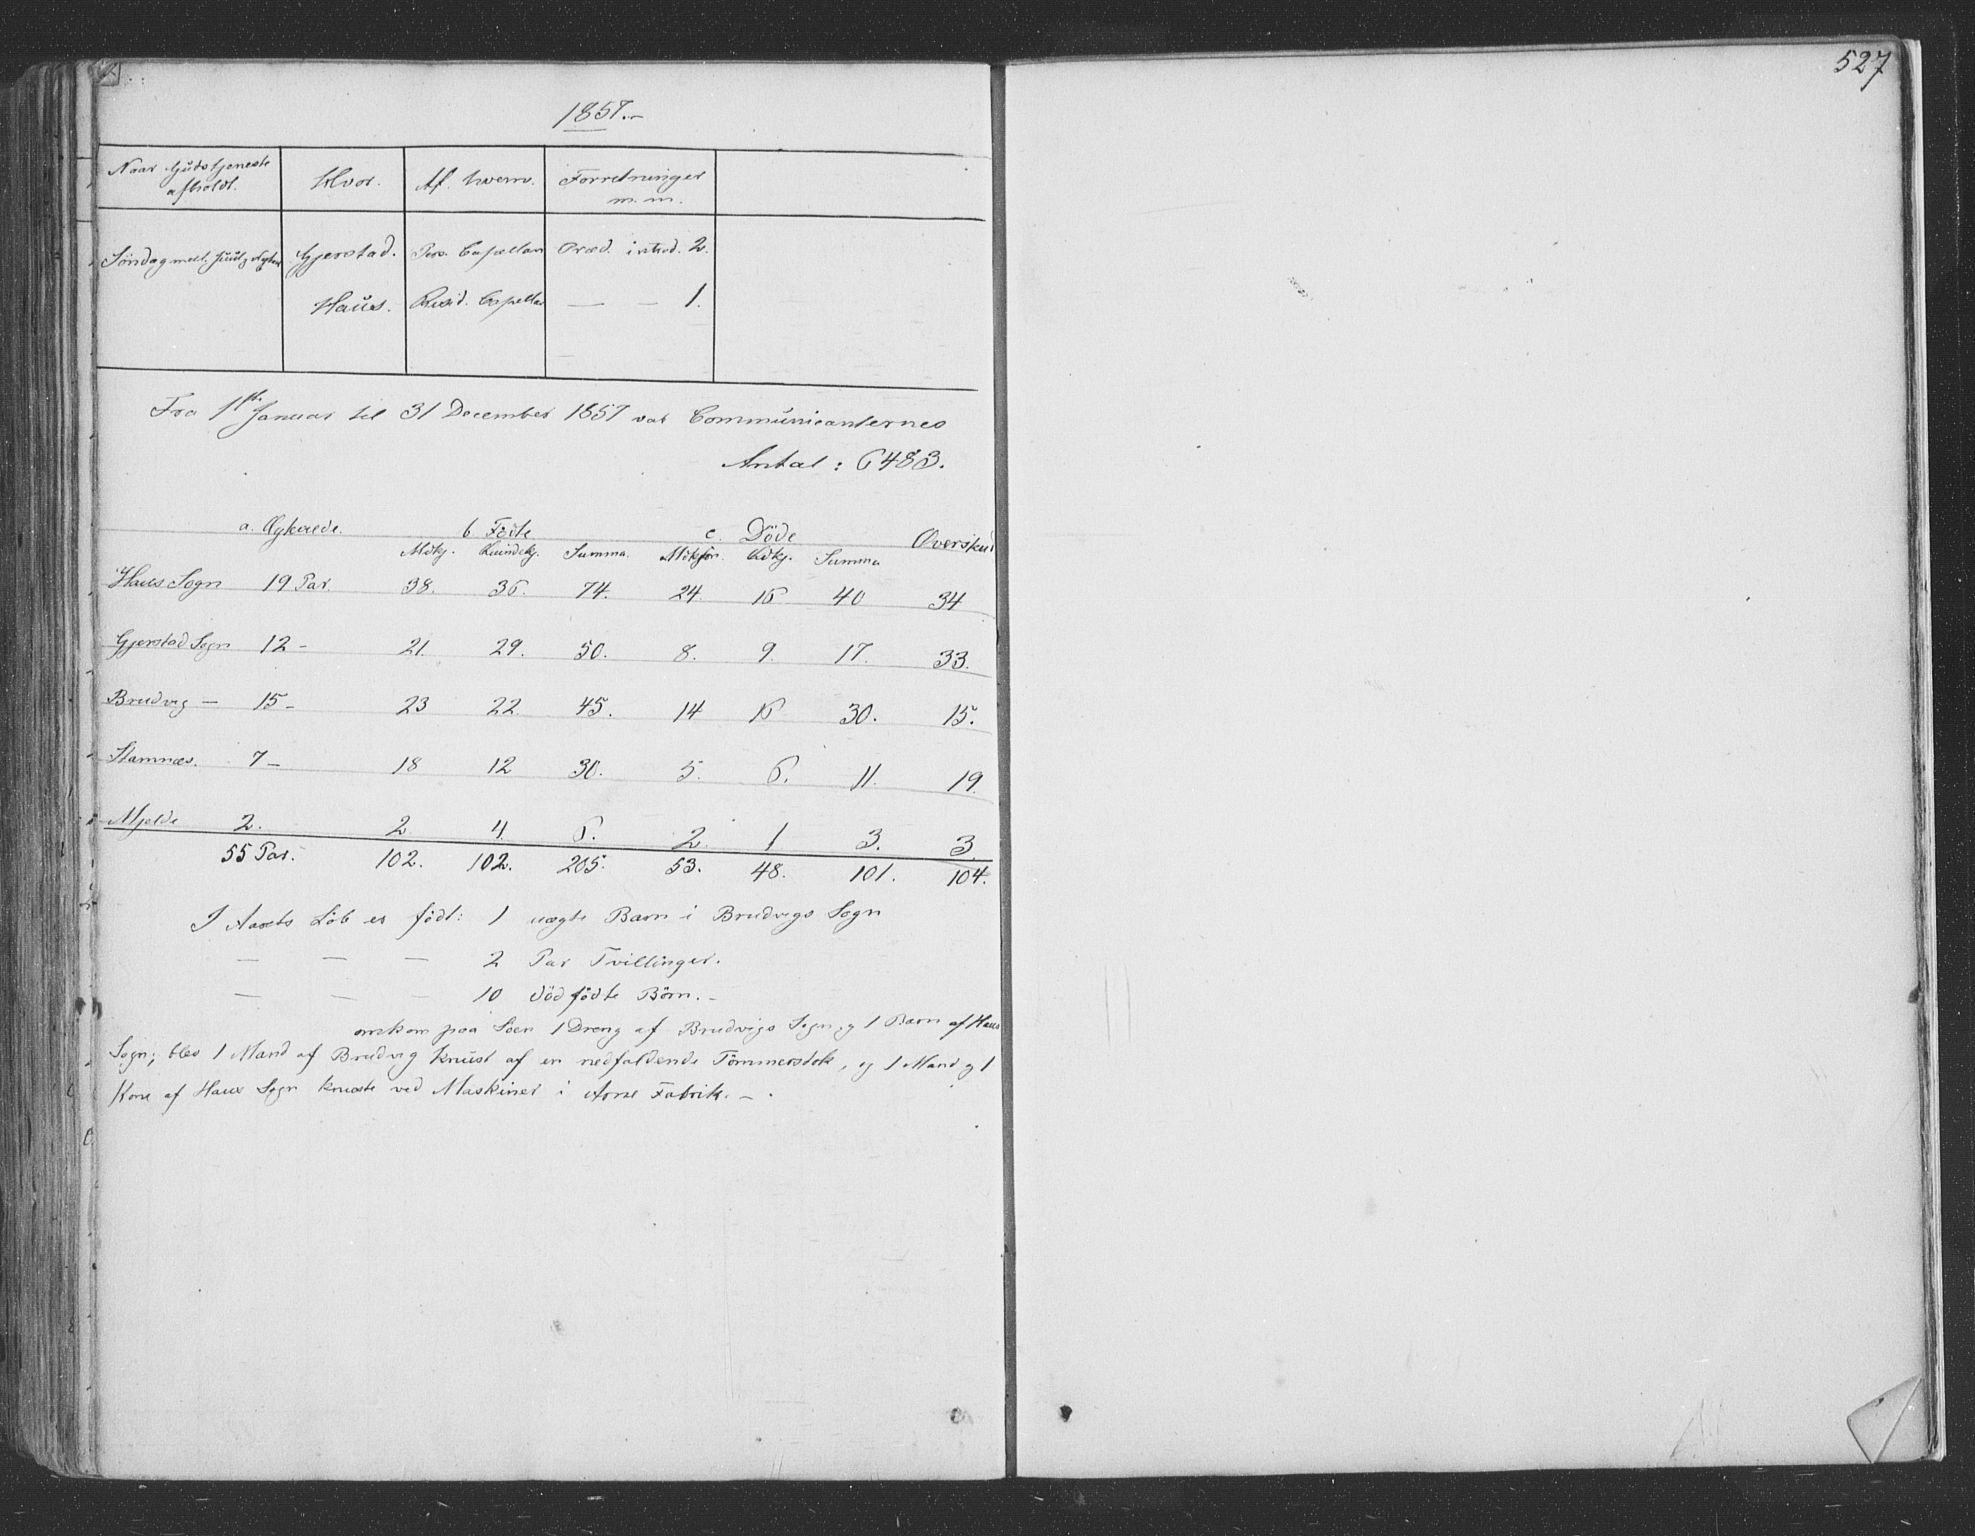 527
1857.-
Naar Gudstjeneste Hvor. Af hvem. Forretninger
afholdt. m. m.
Söndag mell. Juul og Nytaar Gjerstad. Pers. Capellan Ord. introd. 2.
Haus. Resid. Capellan — — 1.
Fra 1ste Januar til 31 December 1857 var Communicanternes
Antal: 6483.
a. Ægteviede. b Födte c. Döde Overskud
Mdkj. Quindekj. Summa. Mdkjön. Qdkj. Summa
Haus Sogn 19 Par. 38. 36. 74. 24. 16 40 34
Gjerstad Sogn 12 - 21. 29. 50. 8. 9. 17. 33.
Brudvig — 15 - 23 22 45. 14 16 30. 15.
Stamnæs. 7 - 18 12 30. 5. 6. 11. 19.
Mjelde 2. 2 4. 6. 2. 1 3. 3.
55 Par. 102. 102. 205. 53. 48. 101. 104.
I Aarets Löb er födt: 1 uægte Barn i Brudvigs Sogn
— — — 2 Par Tvillinger.
— — — 10 dödfödte Börn. -
omkom paa Söen 1 Dreng af Brudvigs Sogn, og 1 Barn af Haus
Sogn; blev 1 Mand af Brudvig knust af en nedfaldende Tömmerstok, og 1 Mand og 1
Kone af Haus Sogn knuste ved Maskiner i Arne Fabrik. -